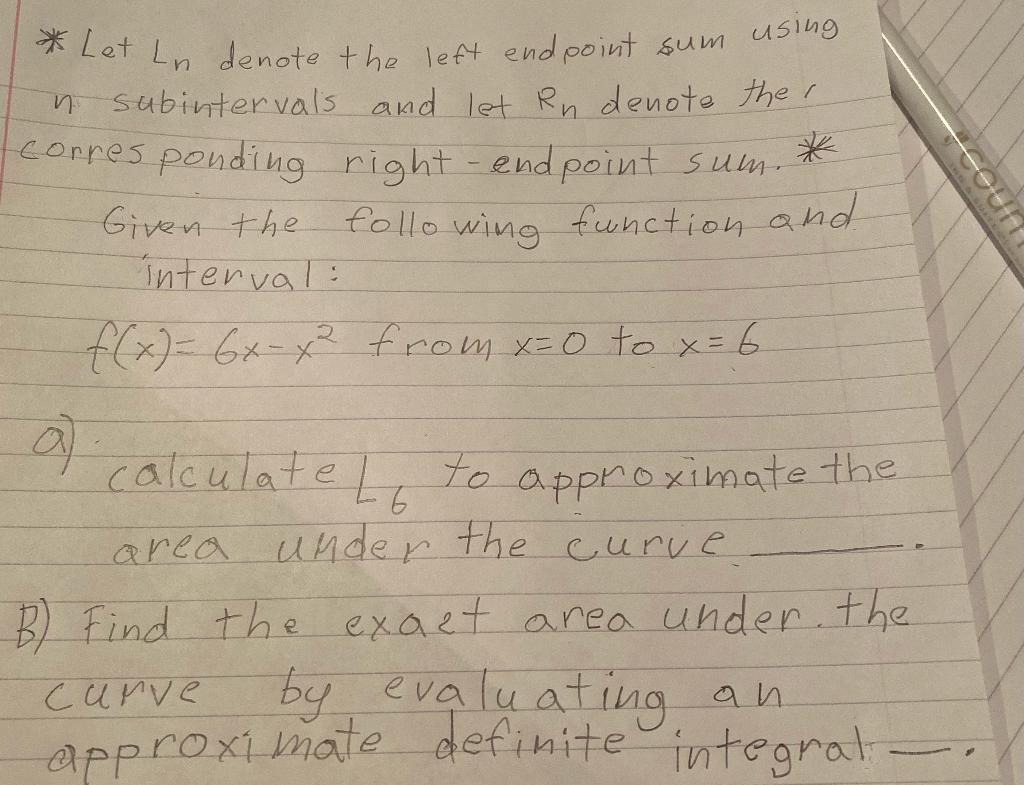 * Let Ln denote the left endpoint sum using
n subintervals and let Rn denote the r
corresponding right-endpoint sum. *
Given the following function and
interval:
f(x)= 6x-x² from x=0 to x=6
a)
calculate L₆ to approximate the
area under the curve ____.
B) Find the exact area under the
curve by evaluating an
approximate definite integral __.
count